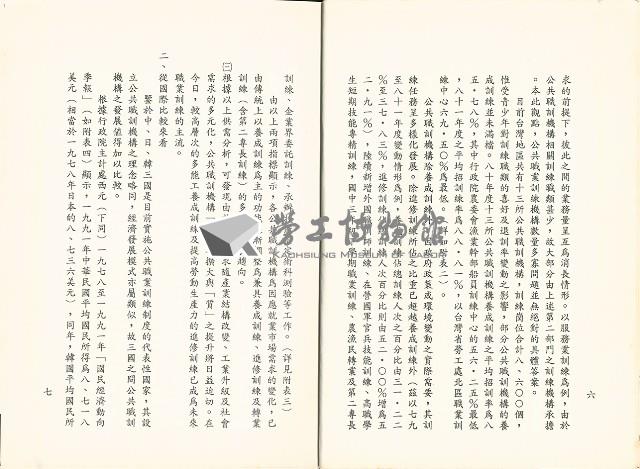 求的前提下，彼此之間的業務量呈五爲消長情形。以服務業訓練爲例，由於
公共職訓機構相關訓練職類甚少，故大部分由上述第二部門之訓練機構承擔
。本此觀點，公共職業訓練機構數量多寡問題並無絕對的具體答案。
目前台灣地區共有十三所公共職訓機構，訓練崗位合計八、六〇〇個，
惟受青少年對訓練職類的喜好及退訓率變動之影響，部分公共職訓機構的養
成訓練並未滿檔。八十年度十三所公共職訓機構養成訓練之平均招訓率爲八
五・七八％，其中行政院農委會漁業幹部船員訓練中心的五六・二五％最低
，八十一年度之平均招訓率爲八八・八一％，以台灣省勞工處北區職業訓
練中心六九・五〇％爲最低。（詳如附表二）。
公共職訓機構除養成訓練外，因政府政策或環境變動之實際需要，其訓
練任務呈多樣化發展。除進修訓練所佔之比重已超越養成訓練外（茲以七九
至八十一年度變動情形爲例，養成訓練佔總訓練人次之百分比由三一・二二
％至三七・八三％，進修訓練人次百分比則由五二・〇〇％增爲五
二・九一％），陸續新增外國職訓師訓練、在營國軍官兵技能訓練、高職學
生短期技能專精訓練，國中三年級學期職業訓練、農漁民轉業及第二專長
六
訓練、企業界委託訓練、承辦
術科測驗等工作。（詳見附表三）
由以上兩項指標顯示，各公共職訓機構爲因應就業市場需求的變化，已
由傳統上以養成訓練爲主的功能，
漸調整爲兼具養成訓練、進修訓練及轉業
訓練（含第二專長訓練）的多
趨向。
㈢根據以上供需分析，可發現由
求隨產業結構改變、工業升級及社會
需求的多元化，公共職訓機構
擴大與「質」之提升將日益迫切。在
今日，較高層次的多能工養成訓練及提高勞動生產力的進修訓練已成爲未來
職業訓練的主流。
二、從國際比較來看
鑒於中、日、韓三國是目前實施公共職業訓練制度的代表性國家，其設
立公共職訓機構之理念略同，經濟發展模式亦屬類似，故三國之間公共職訓
機構之發展值得加以比較。
根據行政院主計處西元（下同）一九七八至一九九一年「國民經濟動向
季報」（如附表四）顯示，一九九一年中華民國平均國民所得爲八、七一八
美元（相當於一九七八年日本的八、七三六美元），同年，韓國平均國民所
七
勞工博物館
KAOHSIUNG MUSEUM OF LABOR